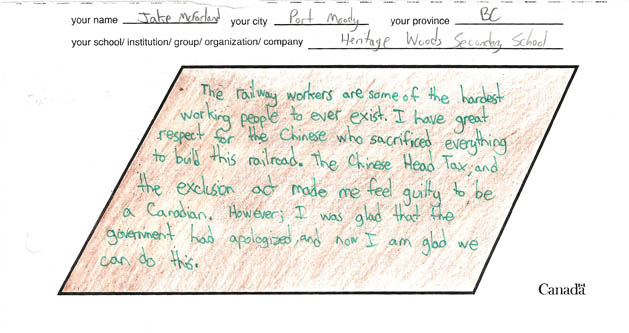 your name Jake McFarland your city Port Moody your province BC
your school/ institution/ group/ organization/ company Heritage Woods Secondary School
The railway workers are some of the hardest
working people to ever exist. I have great
respect for the Chinese who sacrificed everything
to build this railroad. The Chinese Head Tax, and
the exclusion act made me feel guilty to be
a Canadian. However; I was glad that the
government had apologized, and now I am glad we
can do this.
Canada